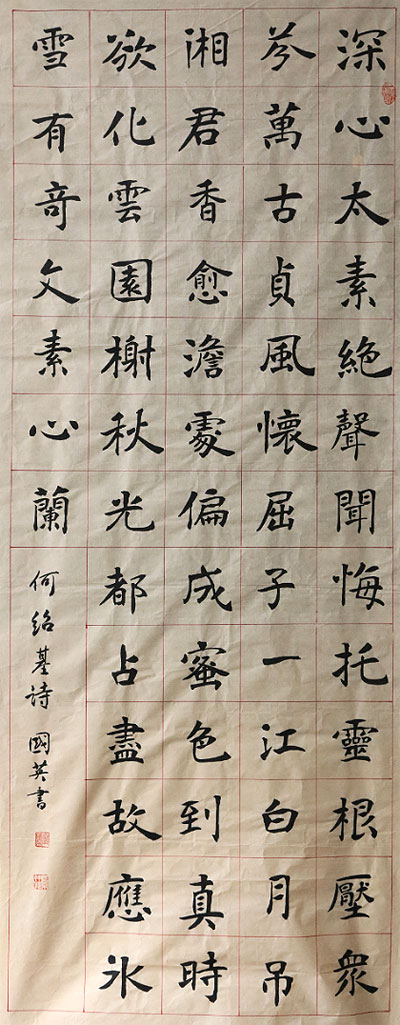 深心太素絕聲聞悔托靈根壓衆
芬萬古貞風懷屈子一江白月吊
湘君香愈澹處偏成蜜色到真時
欲化雲園榭秋光都占盡故應冰
雪有奇文素心蘭
何紹基詩 國英書